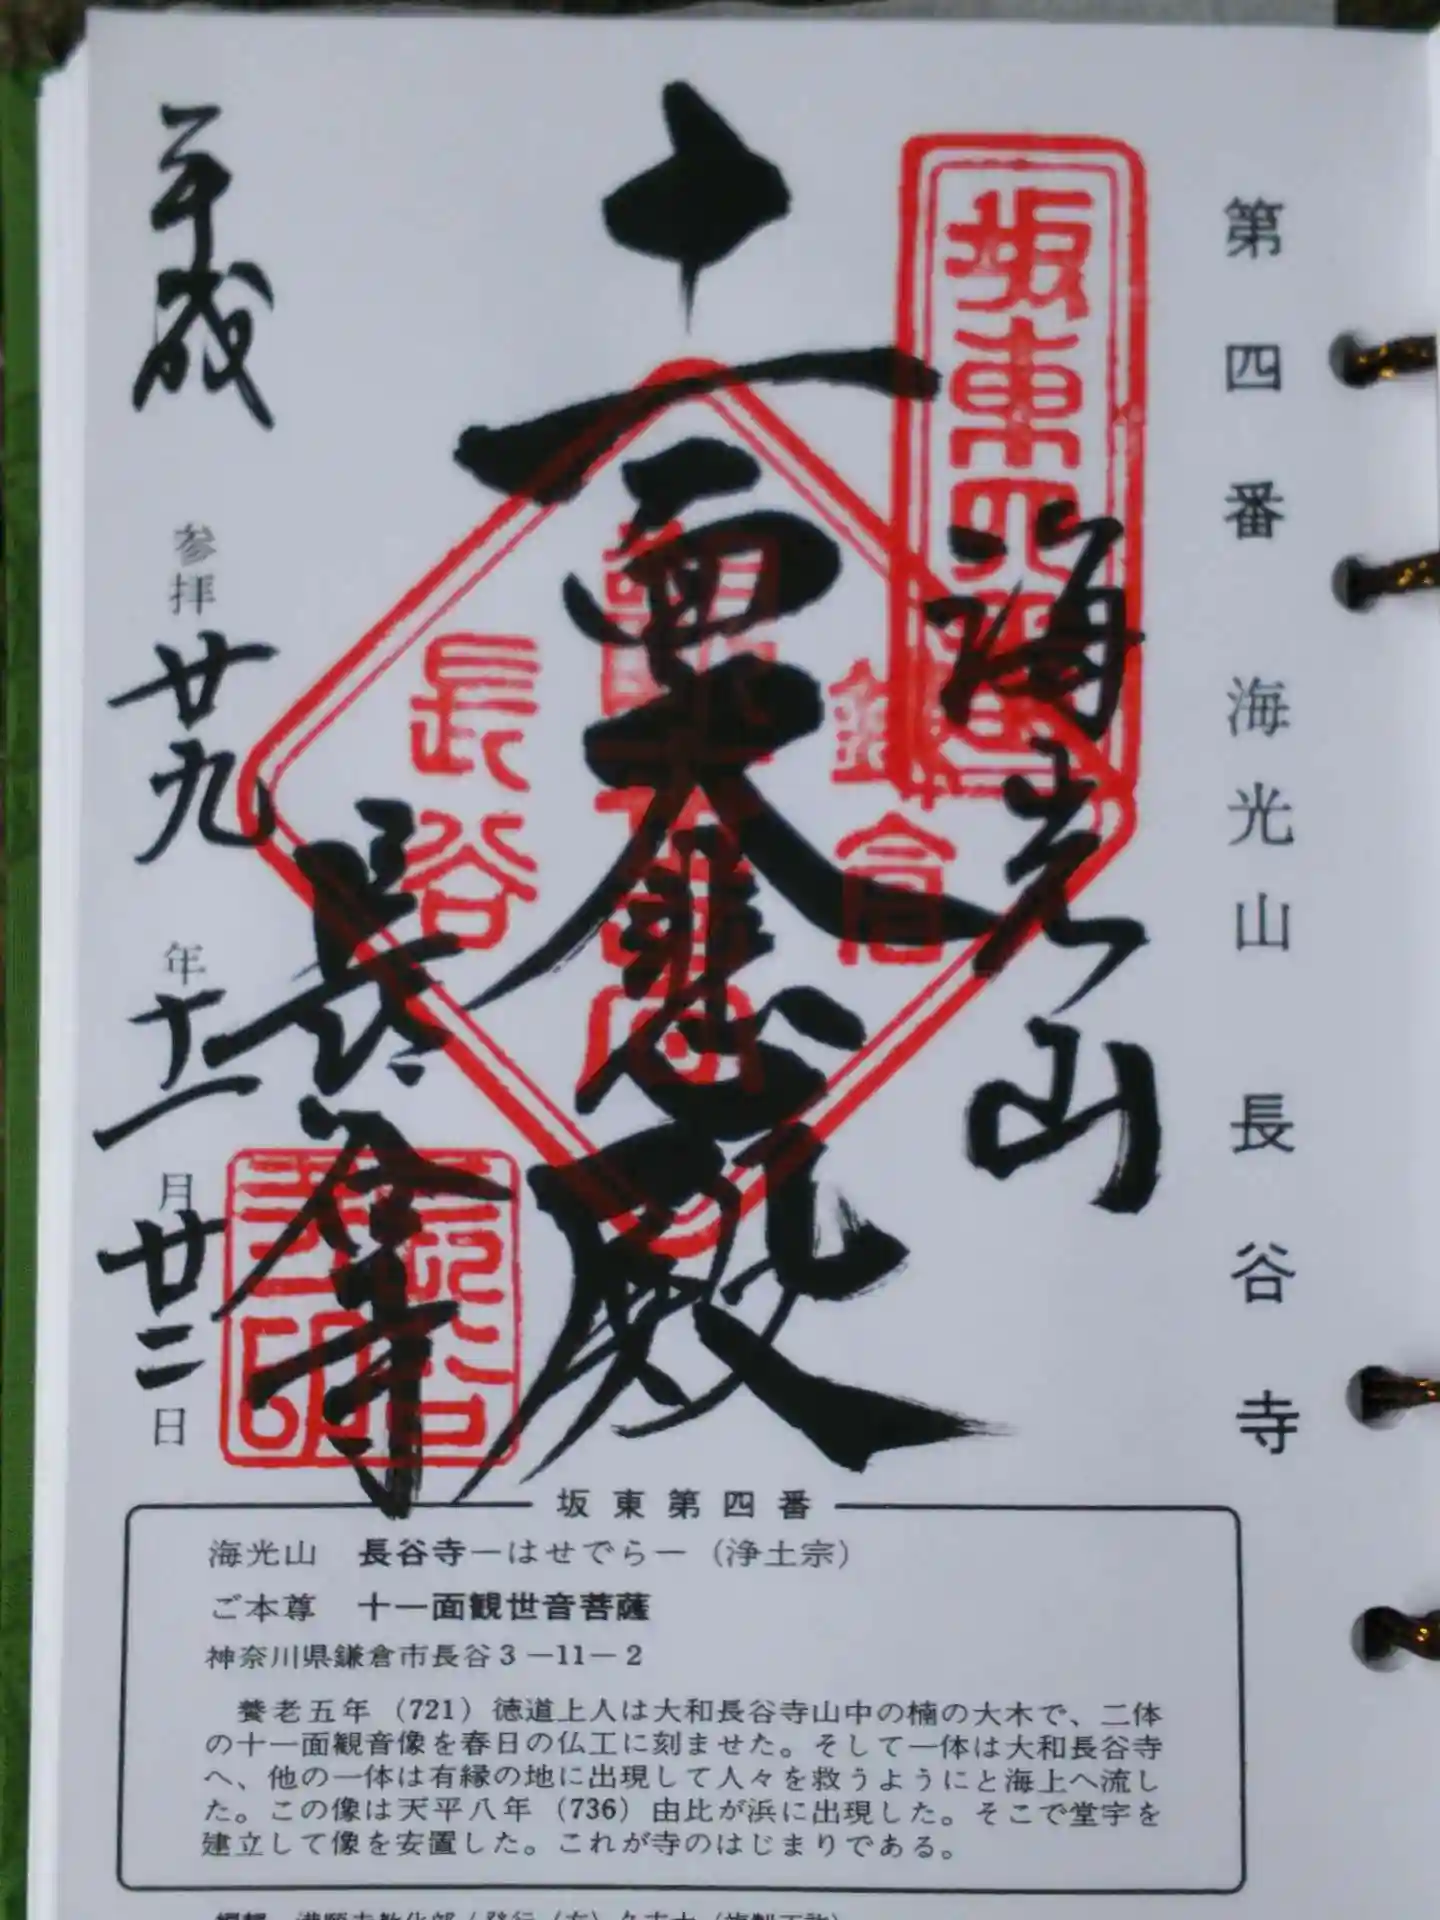 第四番 海光山 長谷寺
坂東四番
海光山
十一面大悲殿
鎌倉
長谷
長谷寺
平成
参拝
廿九
年
十一
月
廿二
日
坂東第四番
海光山 長谷寺―はせでら―（浄土宗）
ご本尊 十一面観世音菩薩
神奈川県鎌倉市長谷３―11―２
養老五年（721）徳道上人は大和長谷寺山中の楠の大木で、二体
の十一面観音像を春日の仏工に刻ませた。そして一体は大和長谷寺
へ、他の一体は有縁の地に出現して人々を救うようにと海上へ流し
た。この像は天平八年（736）由比が浜に出現した。そこで堂宇を
建立して像を安置した。これが寺のはじまりである。